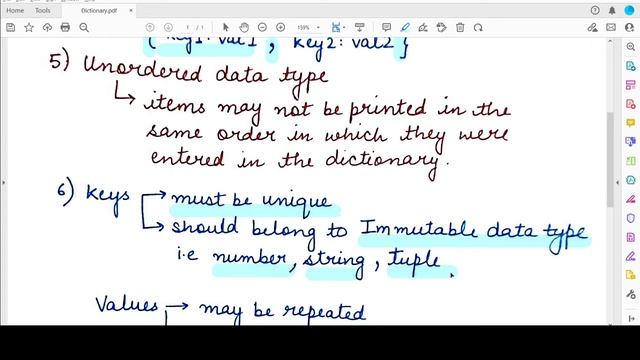 Home
Tools
Dictionary.pdf
159%
{ key1: val1 , key2: val2 }
5) Unordered data type
↳ items may not be printed in the
same order in which they were
entered in the dictionary.
6) Keys → must be unique
↳ should belong to Immutable data type
i.e number, string, tuple.
Values → may be repeated